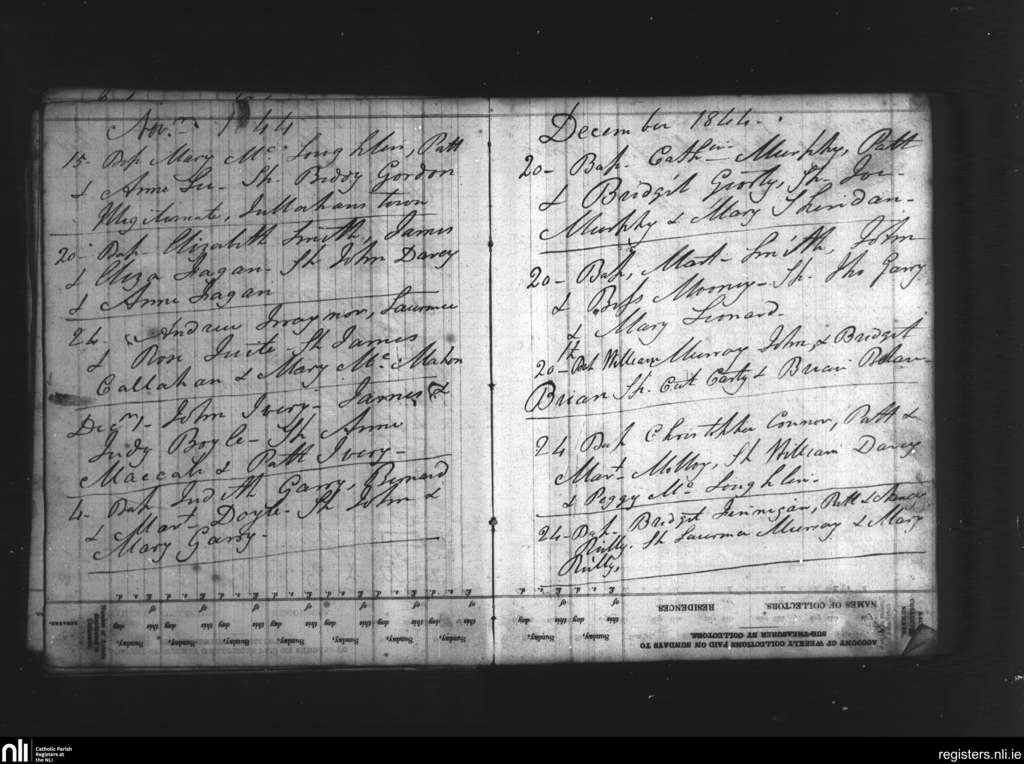 Novr. 1844
15- Bap Mary Mc Loughlin, Patt
& Anne Lee- Sh. Biddy Gordon
Illegitimate, Tullaghanstown
20- Bap- Elizabeth Smith, James
& Eliza Fagan- Sh John Darcy
& Anne Fagan
24 Andrew Traynor, Laurence
& Rose Tuite- Sh James
Callahan & Mary Mc Mahon
Decr, John Ivory- James &
Judy Boyle- Sh Anne
Maccab & Patt Ivory-
4- Bap Judith Garry, Bernard
& Mart Doyle- Sh John &
Mary Garry-
December 1844.
20- Bap- Cathrin Murphy, Patt
& Bridgit Sh. Joe-
Murphy & Mary Sheridan-
20- Bap, Mart- Smith, John
& Bess Mooney- Sh- Tho Garry
& Mary Leonard-
20th- Bap William Murray John & Bridgit
Brian Sh. Cat Carty & Brian
24 Bap Christopher Connor, Patt &
Mart- Molloy, Sh William Darcy
& Peggy Mc Loughlin-
24- Bap- Bridgit Jennigan, Patt &
Rielly. Sh Laurence Murray & Mary
Rielly,
NAMES OF COLLECTORS.
RESIDENCES.
ACCOUNT OF WEEKLY COLLECTIONS PAID ON SUNDAYS TO
SUB-TREASURER BY COLLECTORS.
nli
Catholic Parish
Registers at
the NLI
registers.nli.ie